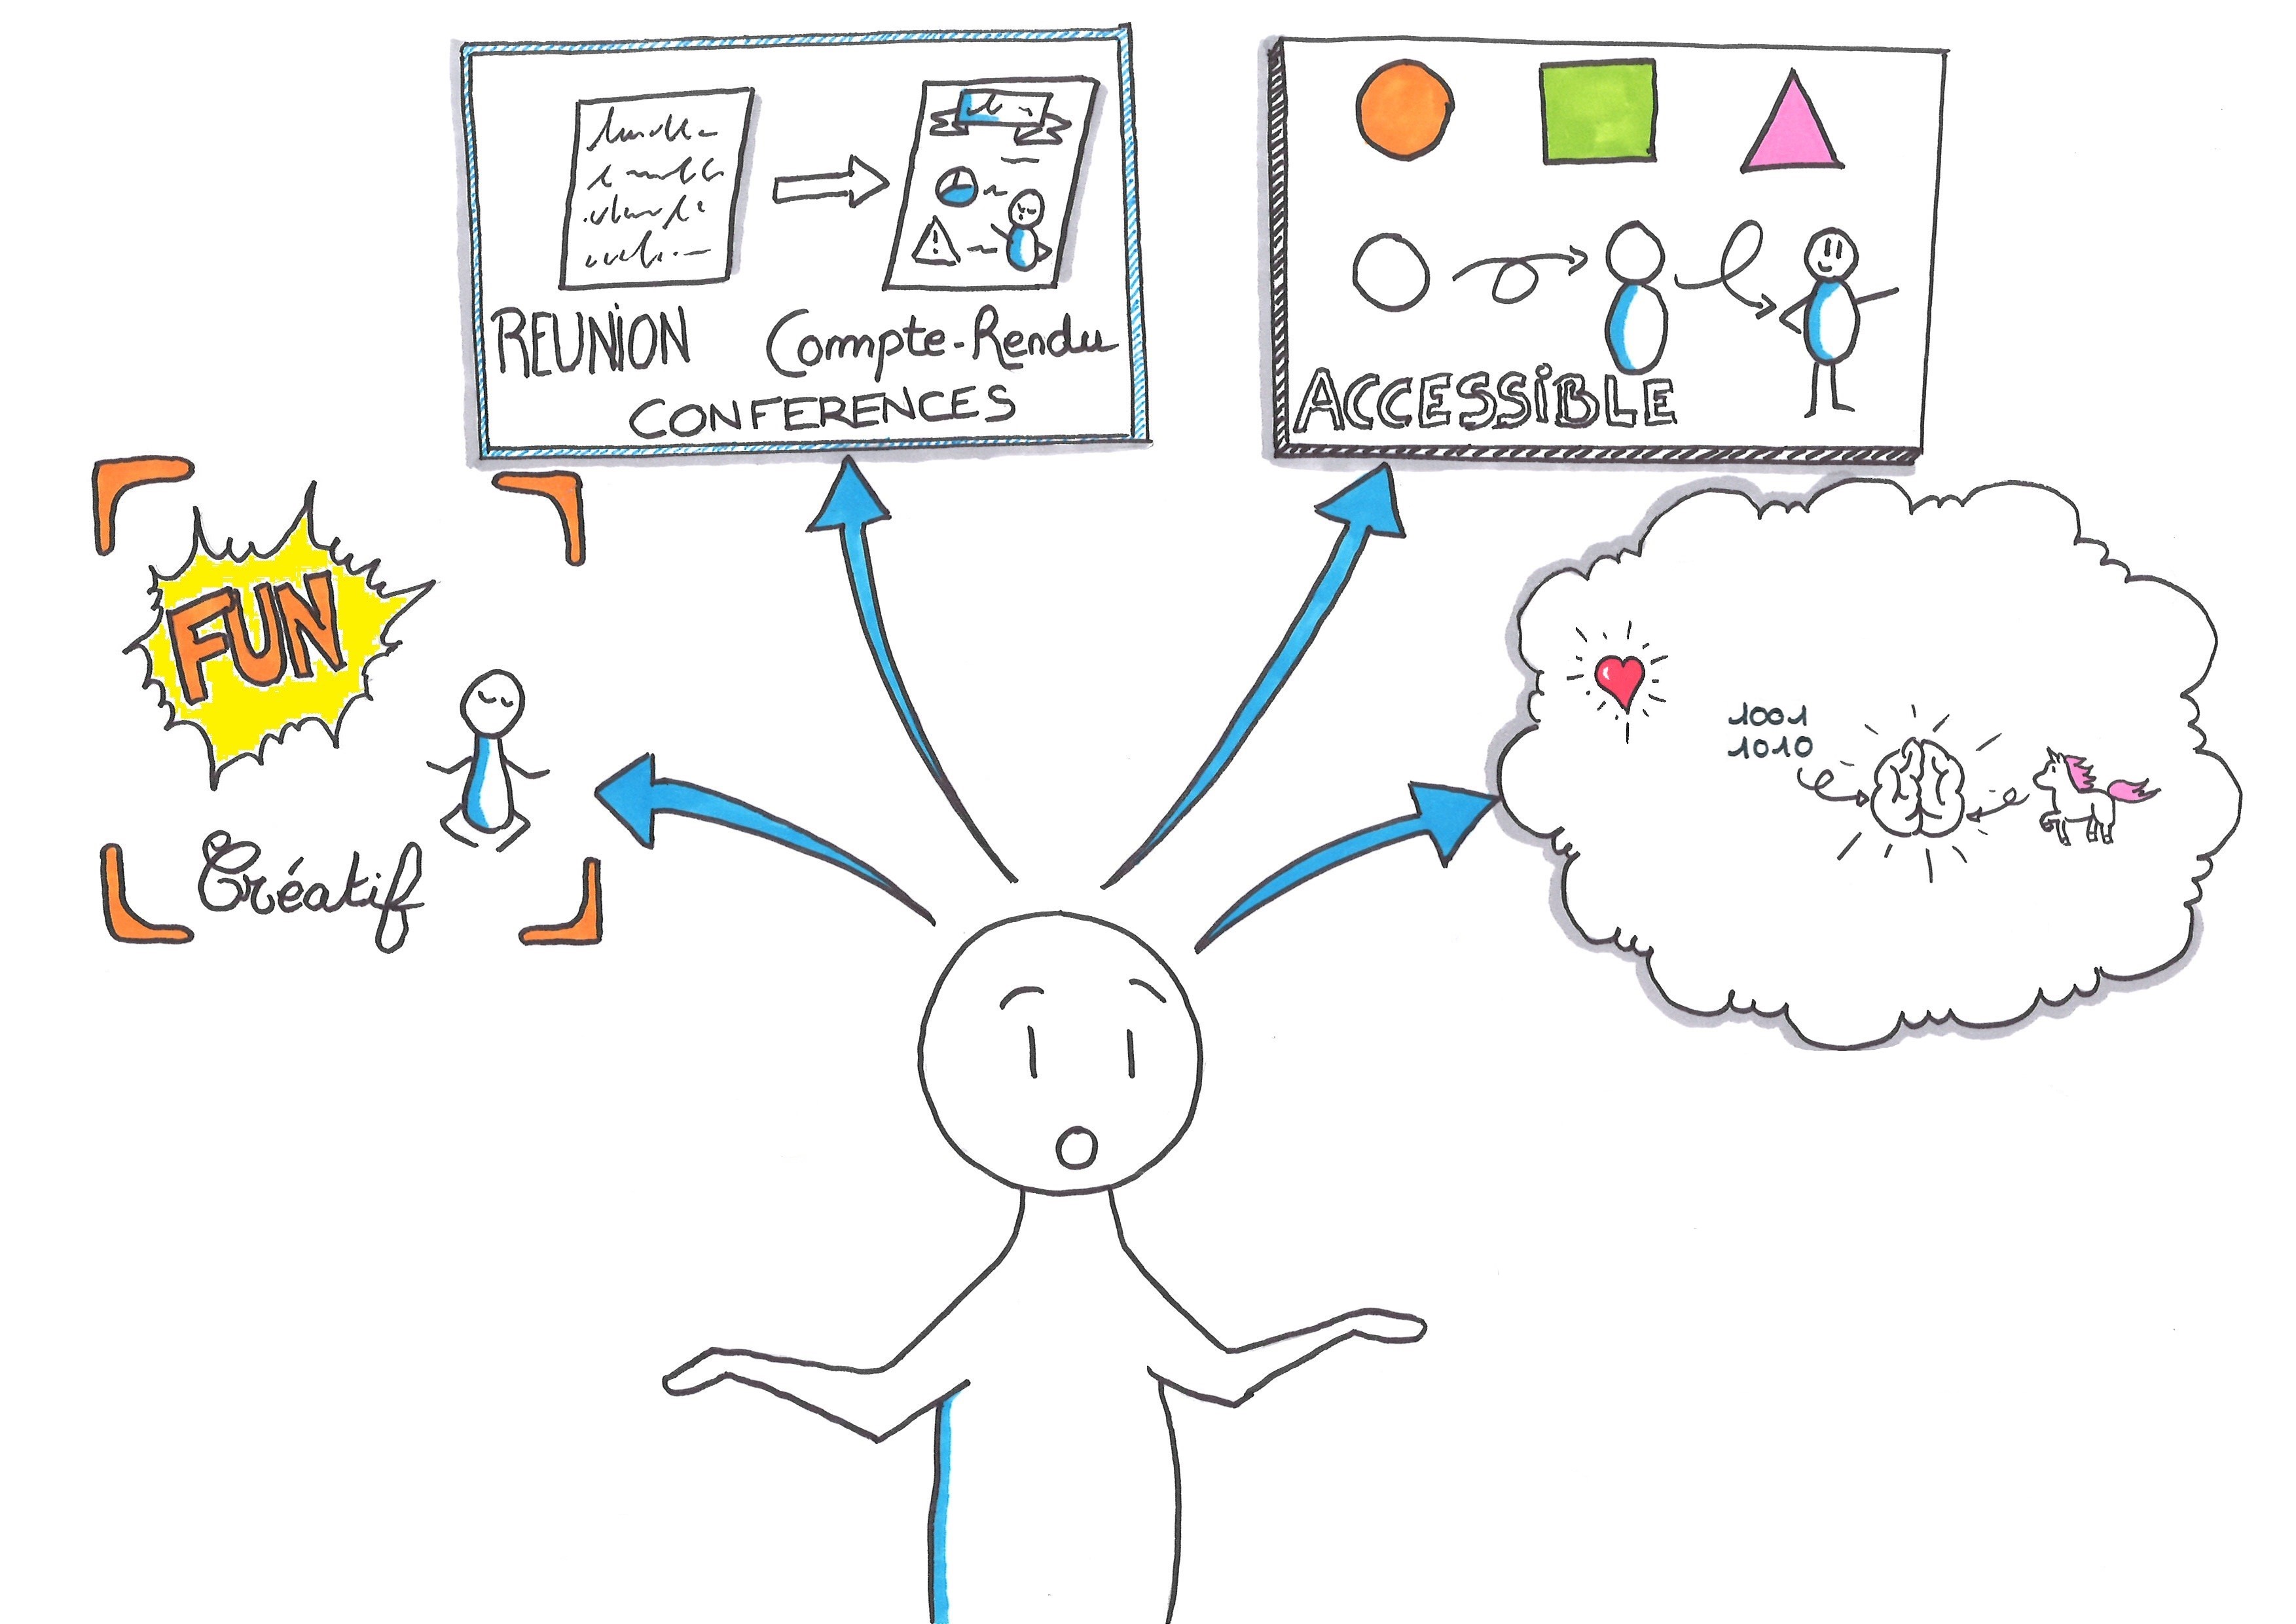 REUNION
Compte-Rendu
CONFERENCES
ACCESSIBLE
FUN
Créatif
1001
1010
!